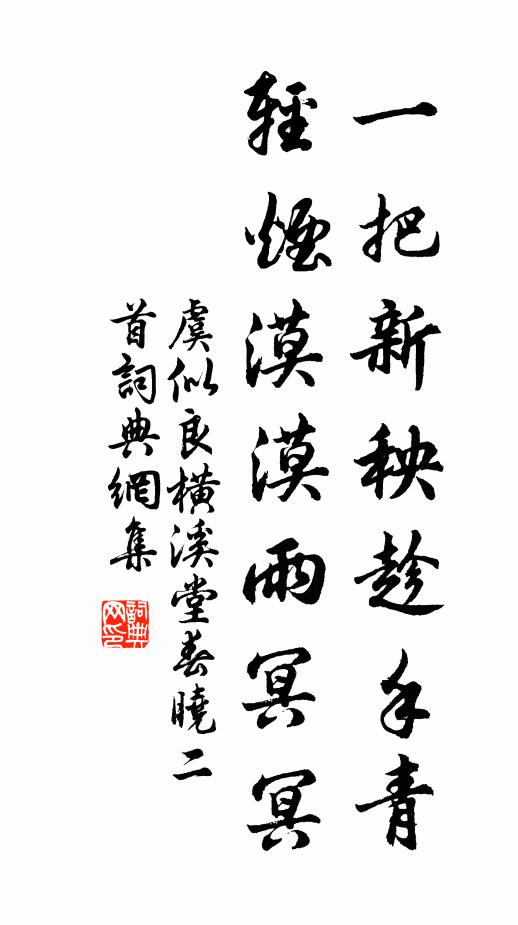 一把新秧趁手青
輕煙漠漠雨冥冥
虞似良橫溪堂春曉二
首詞典網集
詞典網印